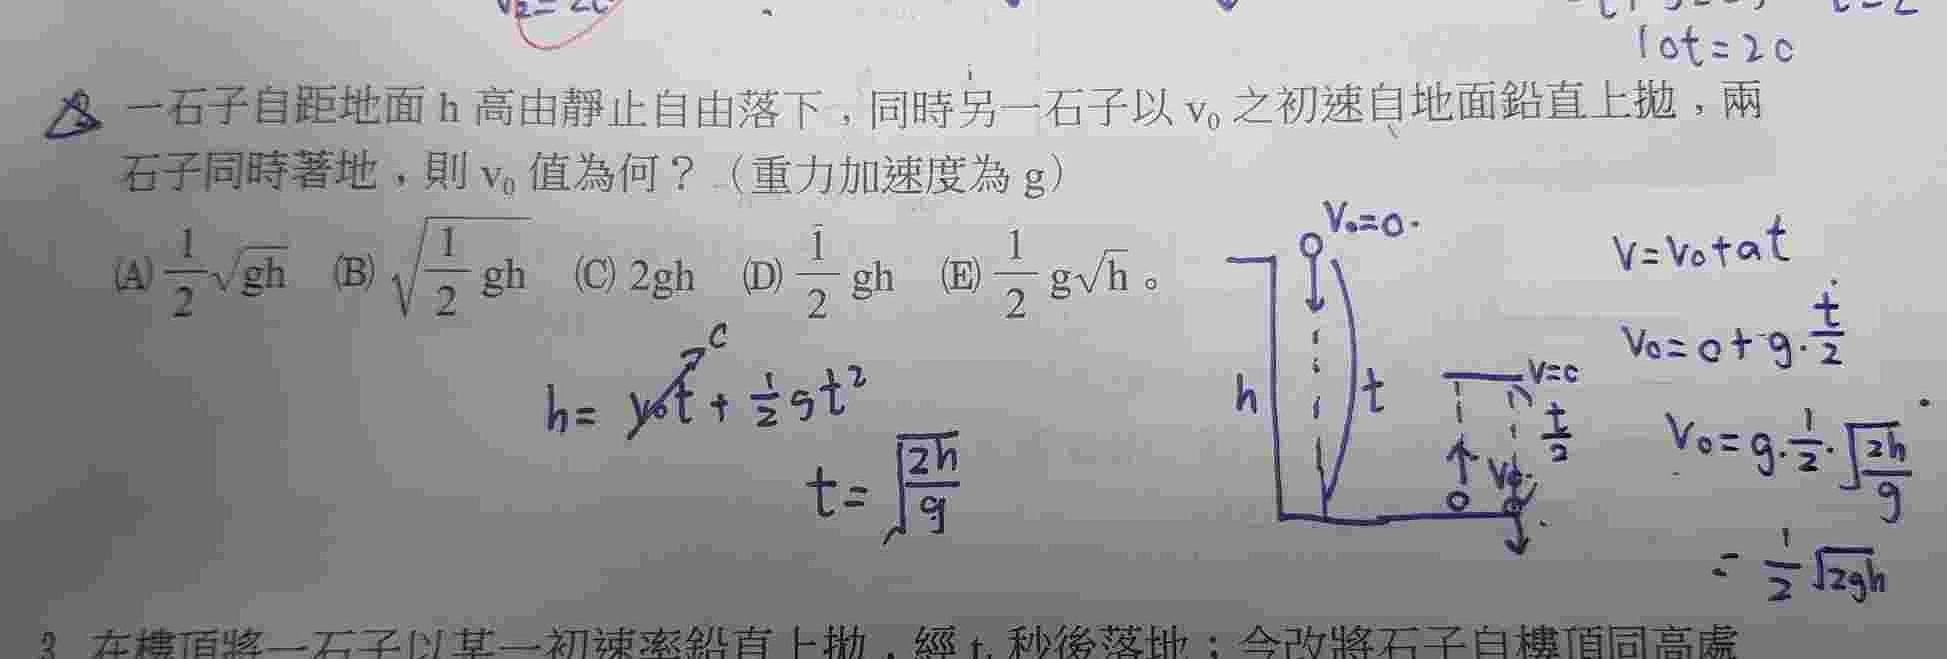 10t=20
一石子自距地面 h 高由靜止自由落下，同時另一石子以 v₀ 之初速自地面鉛直上拋，兩
石子同時著地，則 v₀ 值為何？（重力加速度為 g）
(A) 1/2 √gh (B) √(1/2 gh) (C) 2gh (D) 1/2 gh (E) 1/2 g√h。
h= v₀t + 1/2 gt²
0
t= √(2h/g)
V₀=0
h
t
V=0
t/2
V₀
V=V₀+at
V₀=0+g·t/2
V₀=g·1/2·√(2h/g)
= 1/2 √2gh
3. 在樓頂將一石子以某一初速率鉛直上拋，經 t₁ 秒後落地；今改將石子自樓頂同高處